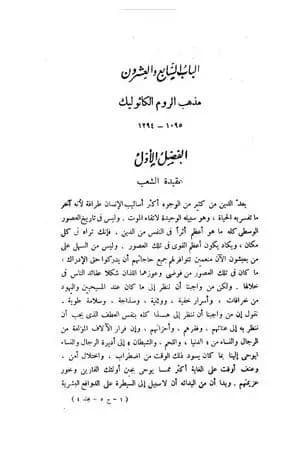 الباب السابع والعشرون
مذهب الروم الكاثوليك
١٠٩٥ – ١٢٩٤
الفصل الأول
عقيدة الشعب
يعد الدين من كثير من الوجوه أكثر أساليب الإنسان طرافة لأنه آخر
ما تفسر به الحياة ، وهو سبيله الوحيدة لاتقاء الموت . وليس في تاريخ العصور
الوسطى كله ما هو أعظم أثراً في النفس من الدين . فإنك تراه في كل
مكان ، ويكاد يكون أعظم القوى في تلك العصور . وليس من السهل على
من يعيشون الآن منعمين تتوافر لهم جميع حاجاتهم أن يدركوا حق الإدراك ،
ما كان في تلك العصور من فوضى وعوز هما اللذان شكلا عقائد الناس في
خلالها . ولكن من واجبنا أن ننظر إلى ما كان عند المسيحيين واليهود
من خرافات ، وأسرار خفية ، ووثنية ، وسذاجة ، وسلامة طوية .
نقول إن من واجبنا أن ننظر إلى هذا كله بنفس العطف الذي يجب أن
ننظر به إلى عنائهم ، وفقرهم ، وأحزانهم . وإن فرار الآلاف المؤلفة من
الرجال والنساء من « الدنيا ، واللحم ، والشيطان » إلى أديرة الرجال والنساء
ليوحي إلينا بما كان يسود ذلك الوقت من اضطراب ، واختلال أمن ،
وعنف أوفت على الغاية أكثر مما يوحي بجبن أولئك الفارين وخور
عزيمتهم . وبدا أن من البدائه أن لا سبيل إلى السيطرة على الدوافع البشرية
( ١ – ج ٥ – مجلد ٤ )